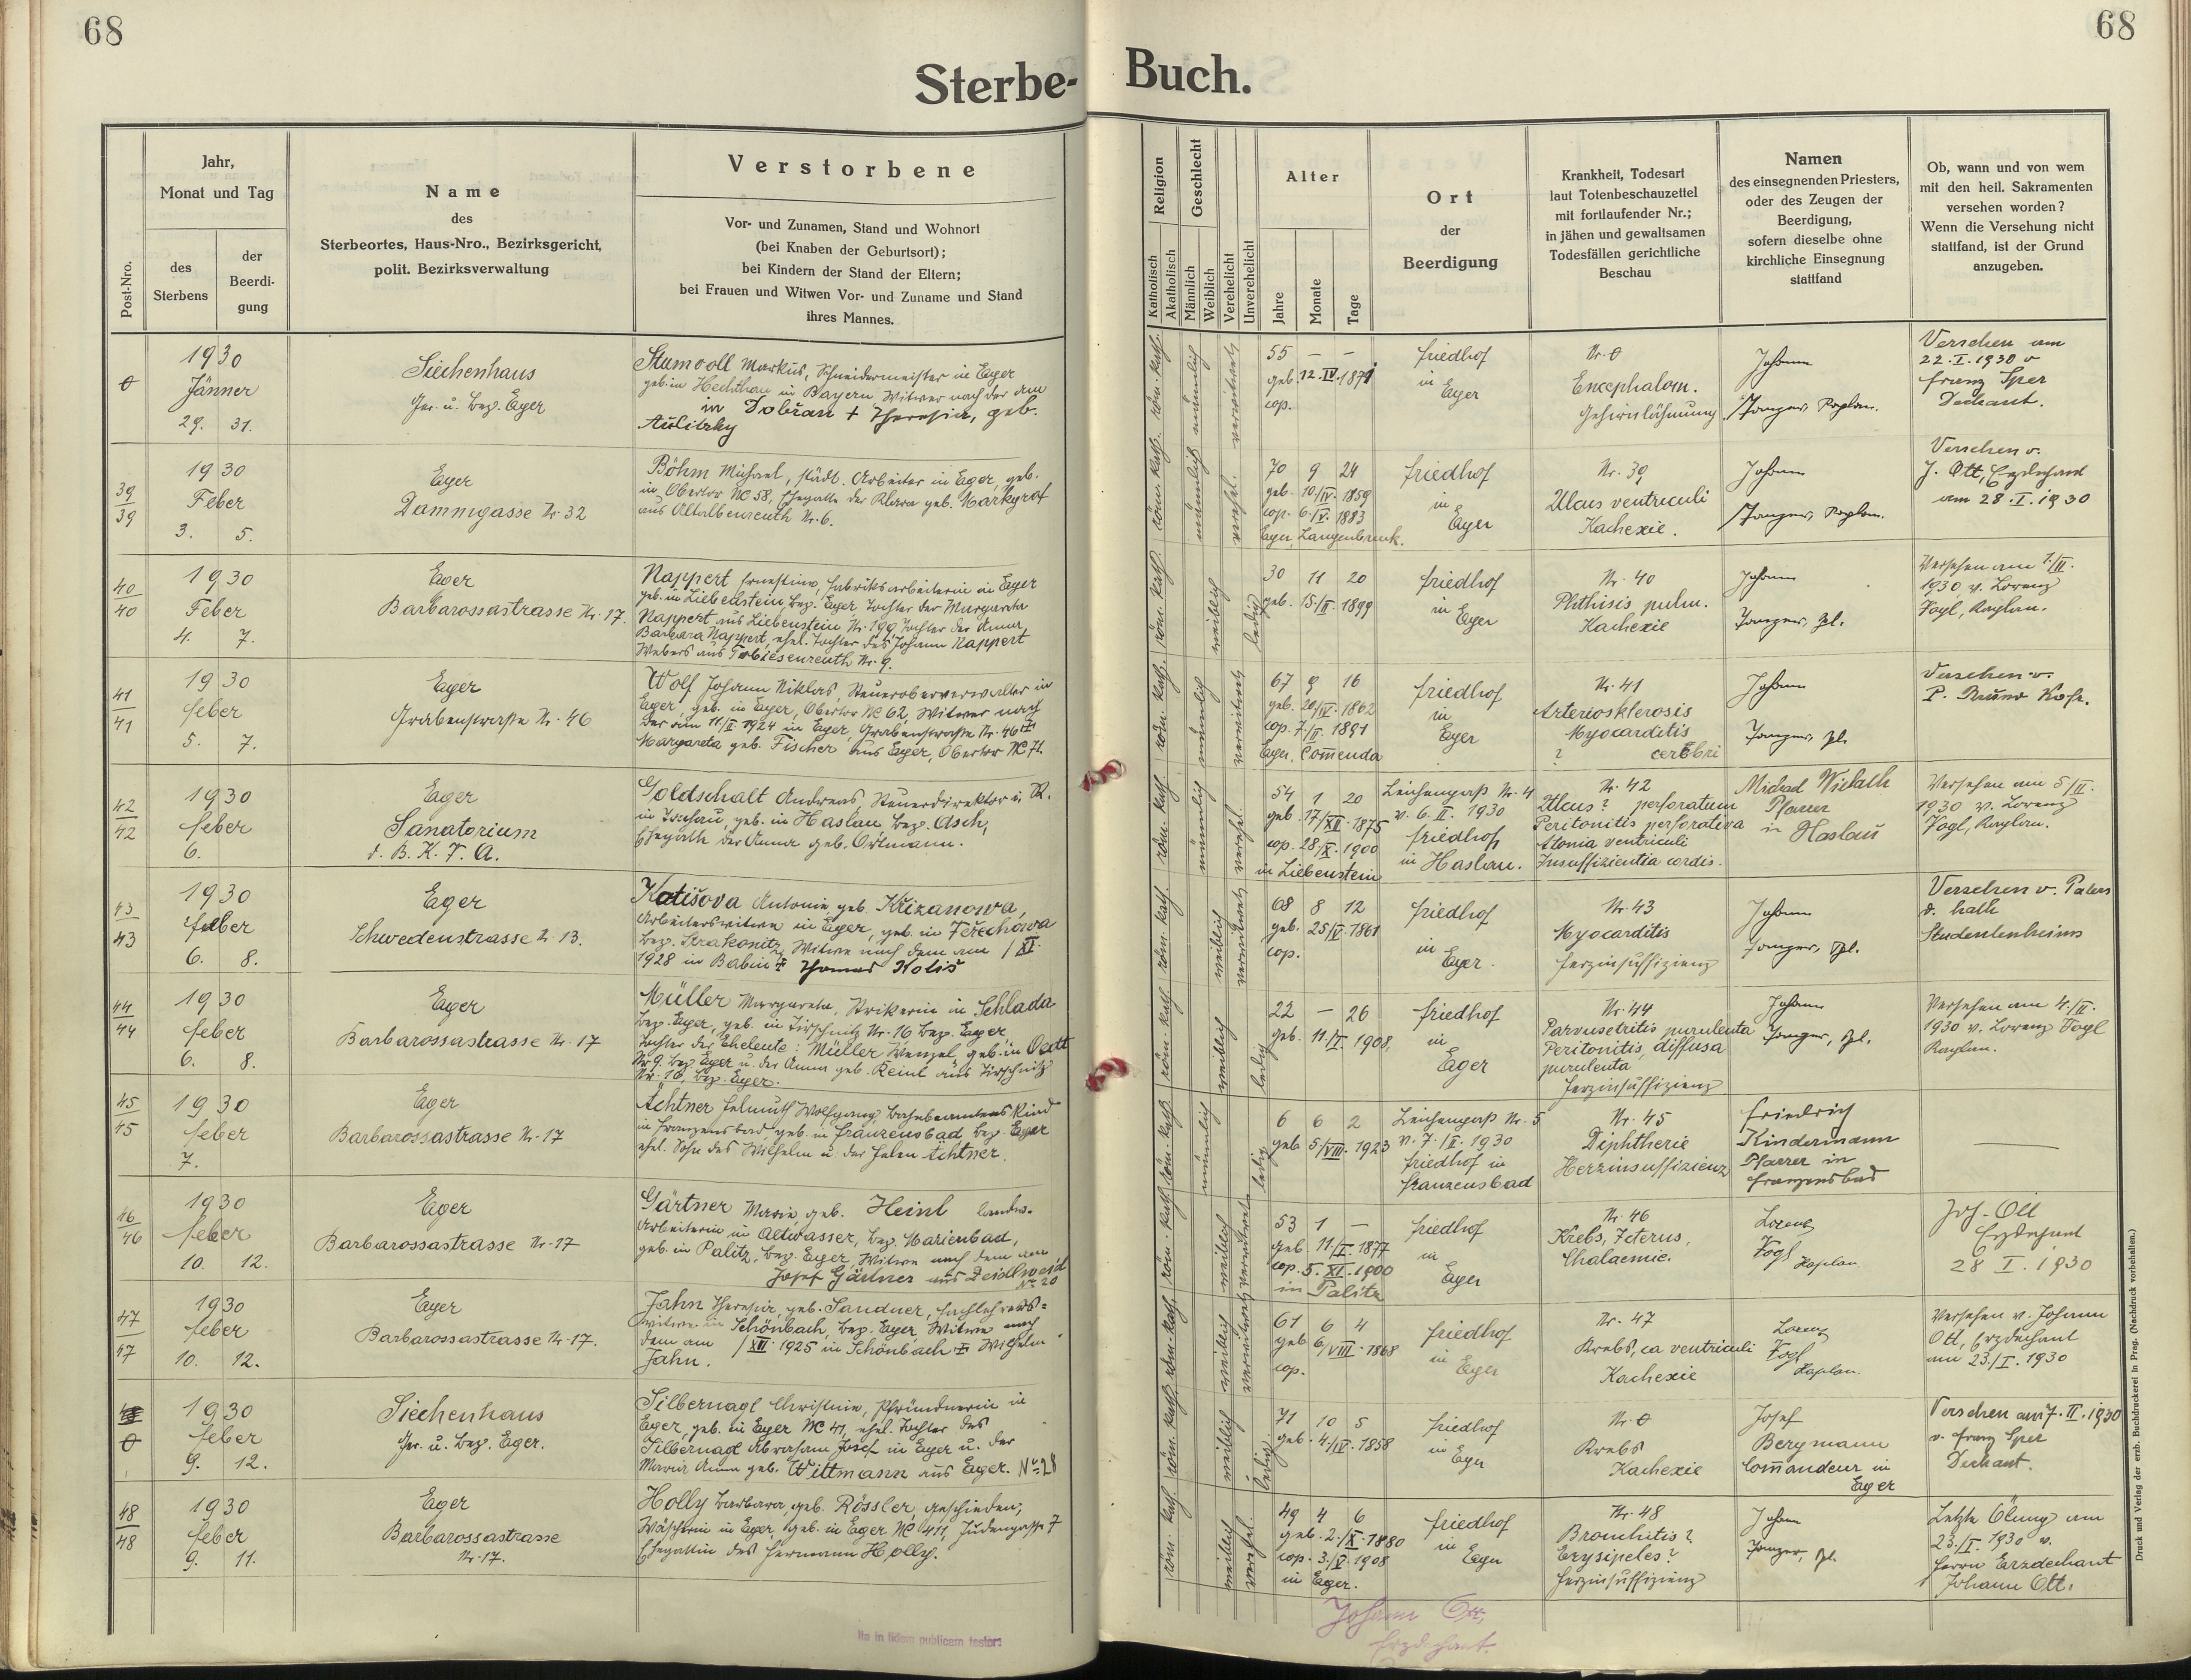 68
68
Sterbe-
Buch.
Post-Nro.
Jahr,
Monat und Tag
des
Sterbens
der
Beerdi-
gung
Name
des
Sterbeortes, Haus-Nro., Bezirksgericht,
polit. Bezirksverwaltung
Verstorbene
Vor- und Zunamen, Stand und Wohnort
(bei Knaben der Geburtsort);
bei Kindern der Stand der Eltern;
bei Frauen und Witwen Vor- und Zuname und Stand
ihres Mannes.
Religion
Katholisch
Akatholisch
Geschlecht
Männlich
Weiblich
Verehelicht
Unverehelicht
Alter
Jahre
Monate
Tage
Ort
der
Beerdigung
Krankheit, Todesart
laut Totenbeschauzettel
mit fortlaufender Nr.;
in jähen und gewaltsamen
Todesfällen gerichtliche
Beschau
Namen
des einsegnenden Priesters,
oder des Zeugen der
Beerdigung,
sofern dieselbe ohne
kirchliche Einsegnung
stattfand
Ob, wann und von wem
mit den heil. Sakramenten
versehen worden?
Wenn die Versehung nicht
stattfand, ist der Grund
anzugeben.
1930
Jänner
29. 31.
Siechenhaus
Ger. u. bez. Eger
Stumvoll Markus, Schneidermeister in Eger
geb. in in Bayern Witwer nach der am
in Dobřan + Theresia, geb.
röm. kath.
männlich
verwitwet
55 — —
geb. 12. IV. 1874
cop.
Friedhof
in
Eger
Nr. 0
Encephalom.
Gehirnlähmung
Johann
Kaplan.
Versehen am
22. I. 1930 v
Franz Sper
Dechant.
39
39
1930
Feber
3. 5.
Eger
Dammgasse Nr. 32
Böhm Michael, städt. Arbeiter in Eger, geb.
in Obertor NC 58, Ehegatte der Klara geb. Markgraf
aus Altalbenreuth Nr. 6.
röm. kath.
männlich
verehel.
70 9 24
geb. 10/IV. 1859
cop. 6./V. 1883
Eger, Langenbruck.
Friedhof
in
Eger
Nr. 39
Ulcus ventriculi
Kachexie.
Johann
Kaplan.
Versehen v.
J. Ott, Erzdechant
am 28. I. 1930
40
40
1930
Feber
4. 7.
Eger
Barbarossastrasse Nr. 17.
Nappert Ernestine, Fabriksarbeiterin in Eger
geb. in Liebenstein bez. Eger Tochter der Margareta
Nappert aus Liebenstein Nr. 199 Tochter der Anna
Barbara Nappert, ehel. Tochter des Johann Nappert
Webers aus Tobiesenreuth Nr. 9.
röm. kath.
weiblich
ledig
30 11 20
geb. 15./II. 1899
Friedhof
in
Eger
Nr. 40
Phthisis pulm.
Kachexie
Johann
Versehen am 1/II.
1930 v. Lorenz
Vogl, Kaplan.
41
41
1930
Feber
5. 7.
Eger
Grabenstrasse Nr. 46
Wolf Johann Niklas, Steueroberverwalter in
Eger, geb. in Eger, Obertor NC 62, Witwer nach
der am 11/II 1924 in Eger, Grabenstrasse Nr. 46 +
Margareta geb. Fischer aus Eger, Obertor NC 71.
röm. kath.
männlich
verwitwet
67 9 16
geb. 20/IV. 1862
cop. 7./II. 1891
Eger, Comenda
Friedhof
in
Eger
Nr. 41
Arteriosklerosis
Myocarditis
? cerebri
Johann
Versehen v.
P. Bruno
42
42
1930
Feber
6.
Eger
Sanatorium
d. B. K. F. A.
Goldschalt Andreas, Steuerdirektor i. R.
in geb. in Haslau bez. Asch,
Ehegatte der Anna geb. Ortmann.
röm. kath.
männlich
verehel.
54 1 20
geb. 17/XII. 1875
cop. 28/X. 1900
in Liebenstein
Leichenpass Nr. 4
v. 6. II. 1930
Friedhof
in Haslau.
Nr. 42
Ulcus? perforatum
Peritonitis perforativa
Atonia ventriculi
Insuffizientia cordis.
Pfarrer
in Haslau
Versehen am 5/II.
1930 v. Lorenz
Vogl, Kaplan.
43
43
1930
Feber
6. 8.
Eger
Schwedenstrasse 13.
Katišova Antonie geb. Křižanowa,
Arbeiterswitwe in Eger, geb. in
bez. Strakonitz, Witwe nach dem am /XI.
1928 in Babin + Thomas Kotiš
röm. kath.
weiblich
verwitwet
68 8 12
geb. 25/V. 1861
cop.
Friedhof
in
Eger.
Nr. 43
Myocarditis
Herzinsuffizienz
Johann
Versehen v.
d. kath
Studentenheims
44
44
1930
Feber
6. 8.
Eger
Barbarossastrasse Nr. 17
Müller Margareta, Strikerin in Schlada
bez. Eger, geb. in Tirschnitz Nr. 16 bez. Eger
Tochter der Eheleute: Müller Wenzel, geb. in
Nr. 9. bez. Eger u. der Anna geb. Reinl aus Tirschnitz
Nr. 16, bez. Eger.
röm. kath.
weiblich
ledig
22 — 26
geb. 11/I. 1908,
Friedhof
in
Eger
Nr. 44
purulenta
Peritonitis, diffusa
purulenta
Herzinsuffizienz
Johann
Versehen am 4./II.
1930 v. Lorenz Vogl
Kaplan.
45
45
1930
Feber
7.
Eger
Barbarossastrasse Nr. 17
Ächtner Helmuth Wolfgang, Bahnbeamtens Kind
in Franzensbad, geb. in Franzensbad, bez. Eger
ehel. Sohn des Wilhelm u. der Helen Ächtner.
röm. kath.
männlich
ledig
6 6 2
geb 5/VIII. 1923
Leichenpass Nr. 5
v. 7./II. 1930
Friedhof in
Franzensbad
Nr. 45
Diphtherie
Herzinsuffizienz
Friedrich
Kindermann
Pfarrer in
Franzensbad
46
46
1930
Feber
10. 12.
Eger
Barbarossastrasse Nr. 17
Gärtner Marie geb. Heinl landw.
Arbeiterin in Altwasser, bez. Marienbad,
geb. in Palitz, bez. Eger, Witwe nach dem am
Josef Gärtner aus Zeidlweid
Nr. 20
röm. kath.
weiblich
verwitwet
53 1 —
geb. 11/I. 1877
cop. 5. XI. 1900
in Palitz
Friedhof
in
Eger
Nr. 46
Krebs, Icterus,
Cholaemie.
Lorenz
Vogl Kaplan.
Joh. Ott
Erzdechant
28 I. 1930
47
47
1930
Feber
10. 12.
Eger
Barbarossastrasse Nr. 17.
Jahn Theresia, geb. Sandner, Fachlehrers=
witwe in Schönbach, bez. Eger, Witwe nach
dem am /XII. 1925 in Schönbach + Wilhelm
Jahn.
röm. kath.
weiblich
verwitwet
61 6 4
geb 6/VIII. 1868
cop.
Friedhof
in
Eger
Nr. 47
Krebs, ca ventriculi
Kachexie
Lorenz
Vogl
Kaplan.
Versehen v. Johann
Ott, Erzdechant
am 23./I. 1930
1930
Feber
9. 12.
Siechenhaus
Ger. u. bez. Eger.
Silbernagl Christine, Pfründnerin in
Eger, geb. in Eger NC 41, ehel. Tochter des
Silbernagl Abraham Josef in Eger u. der
Maria Anna geb. Wittmann aus Eger. No 28
röm. kath.
weiblich
ledig
71 10 5
geb. 4/IV. 1858
Friedhof
in
Eger
Nr. 0
Krebs
Kachexie
Josef
Bergmann
Comandeur in
Eger
Versehen am 7. II. 1930
v. Franz Sper
Dechant.
48
48
1930
Feber
9. 11.
Eger
Barbarossastrasse
Nr. 17.
Holly Barbara, geb. Rössler, geschieden,
Wäscherin in Eger, geb. in Eger NC 411, Judengasse 7
Ehegattin des Hermann Holly.
röm. kath.
weiblich
verehel.
49 4 6
geb. 2./X. 1880
cop. 3./V. 1908
in Eger.
Friedhof
in
Eger
Nr. 48
Bronchitis?
Erysipeles?
Herzinsuffizienz
Johann
Letzte Ölung am
23./I. 1930 v.
Herrn Erzdechant
Johann Ott.
Ita in fidem publicam testor:
Johann Ott,
Erzdechant.
Druck und Verlag der erzb. Buchdruckerei in Prag. (Nachdruck vorbehalten.)